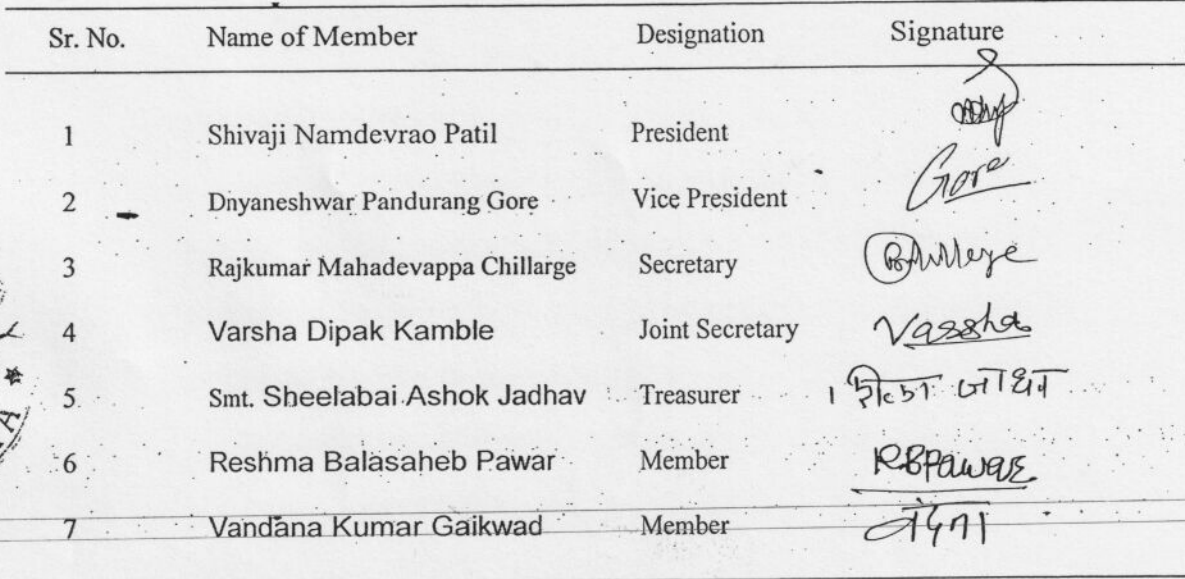 Sr. No. Name of Member Designation Signature
1 Shivaji Namdevrao Patil President
2 Dnyaneshwar Pandurang Gore Vice President Gore
3 Rajkumar Mahadevappa Chillarge Secretary
4 Varsha Dipak Kamble Joint Secretary Varsha
5. Smt. Sheelabai Ashok Jadhav Treasurer जाधव
6 Reshma Balasaheb Pawar Member RBPawar
7 Vandana Kumar Gaikwad Member वंदना